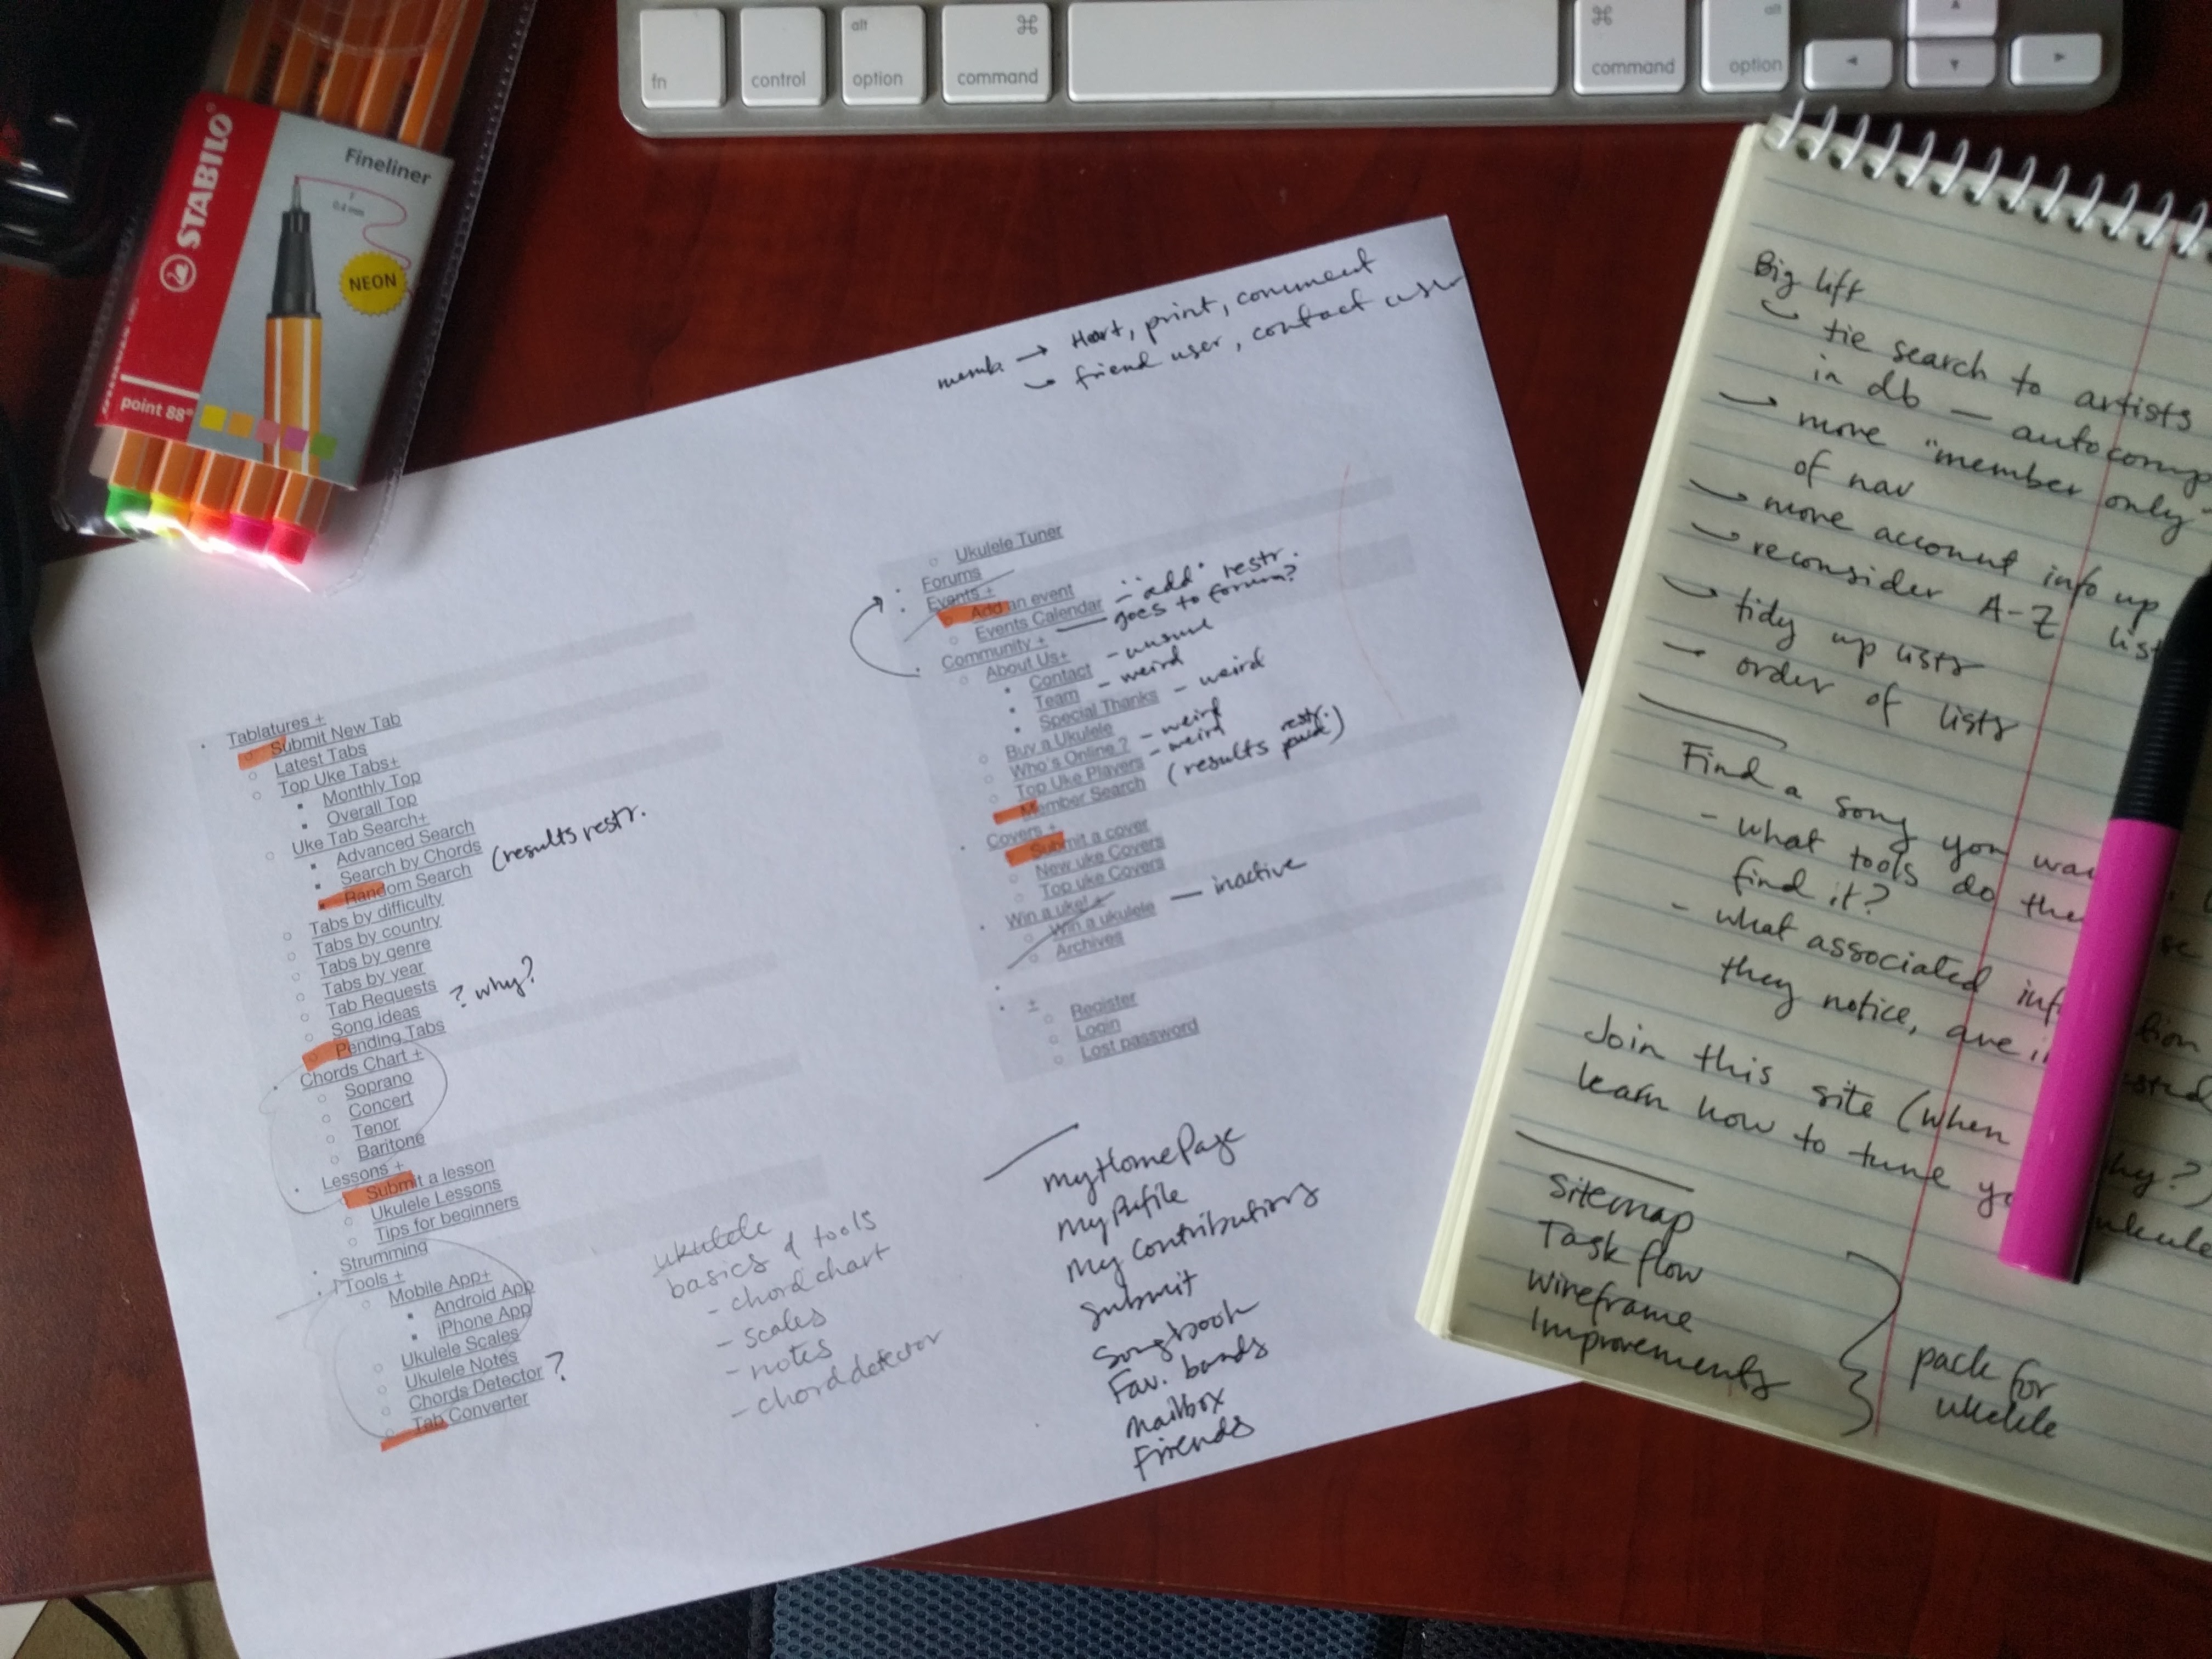 fn
control
alt
option
⌘
command
⌘
command
alt
option
STABILO
Fineliner
F
0,4 mm
NEON
point 88
memb. → Heart, print, comment
→ friend user, contact user
Tablatures +
Submit New Tab
Latest Tabs
Top Uke Tabs+
Monthly Top
Overall Top
Uke Tab Search+
Advanced Search
Search by Chords
Random Search (results restr.
Tabs by difficulty
Tabs by country
Tabs by genre
Tabs by year
Tab Requests
Song ideas ? why?
Pending Tabs
Chords Chart +
Soprano
Concert
Tenor
Baritone
Lessons +
Submit a lesson
Ukulele Lessons
Tips for beginners
Strumming
Tools +
Mobile App+
Android App
iPhone App
Ukulele Scales
Ukulele Notes
Chords Detector ?
Tab Converter
ukulele
basics & tools
- chord chart
- scales
- notes
- chord detector
Ukulele Tuner
Forums
Events +
Add an event - "add" restr.
Events Calendar
Community + — goes to forum?
About Us+
Contact - unsure
Team - weird
Special Thanks - weird
Buy a Ukulele
Who's Online ? - weird
Top Uke Players - weird
Member Search (results restr.)
Covers +
Submit a cover
New uke Covers
Top uke Covers
Win a uke! +
Win a ukulele — inactive
Archives
±
Register
Login
Lost password
MyHomePage
My Profile
My Contributions
Submit
Songbook
Fav. bands
Mailbox
Friends
Big lift
→ tie search to artists
in db — autocomp
→ move "member only"
of nav
→ move account info up
→ reconsider A-Z list
→ tidy up lists
→ order of lists
Find a song you
- what tools do
find it?
- what associated
they notice, are
Join this site (when
learn how to tune
Sitemap
Task flow
Wireframe
Improvements
pack for
ukulele